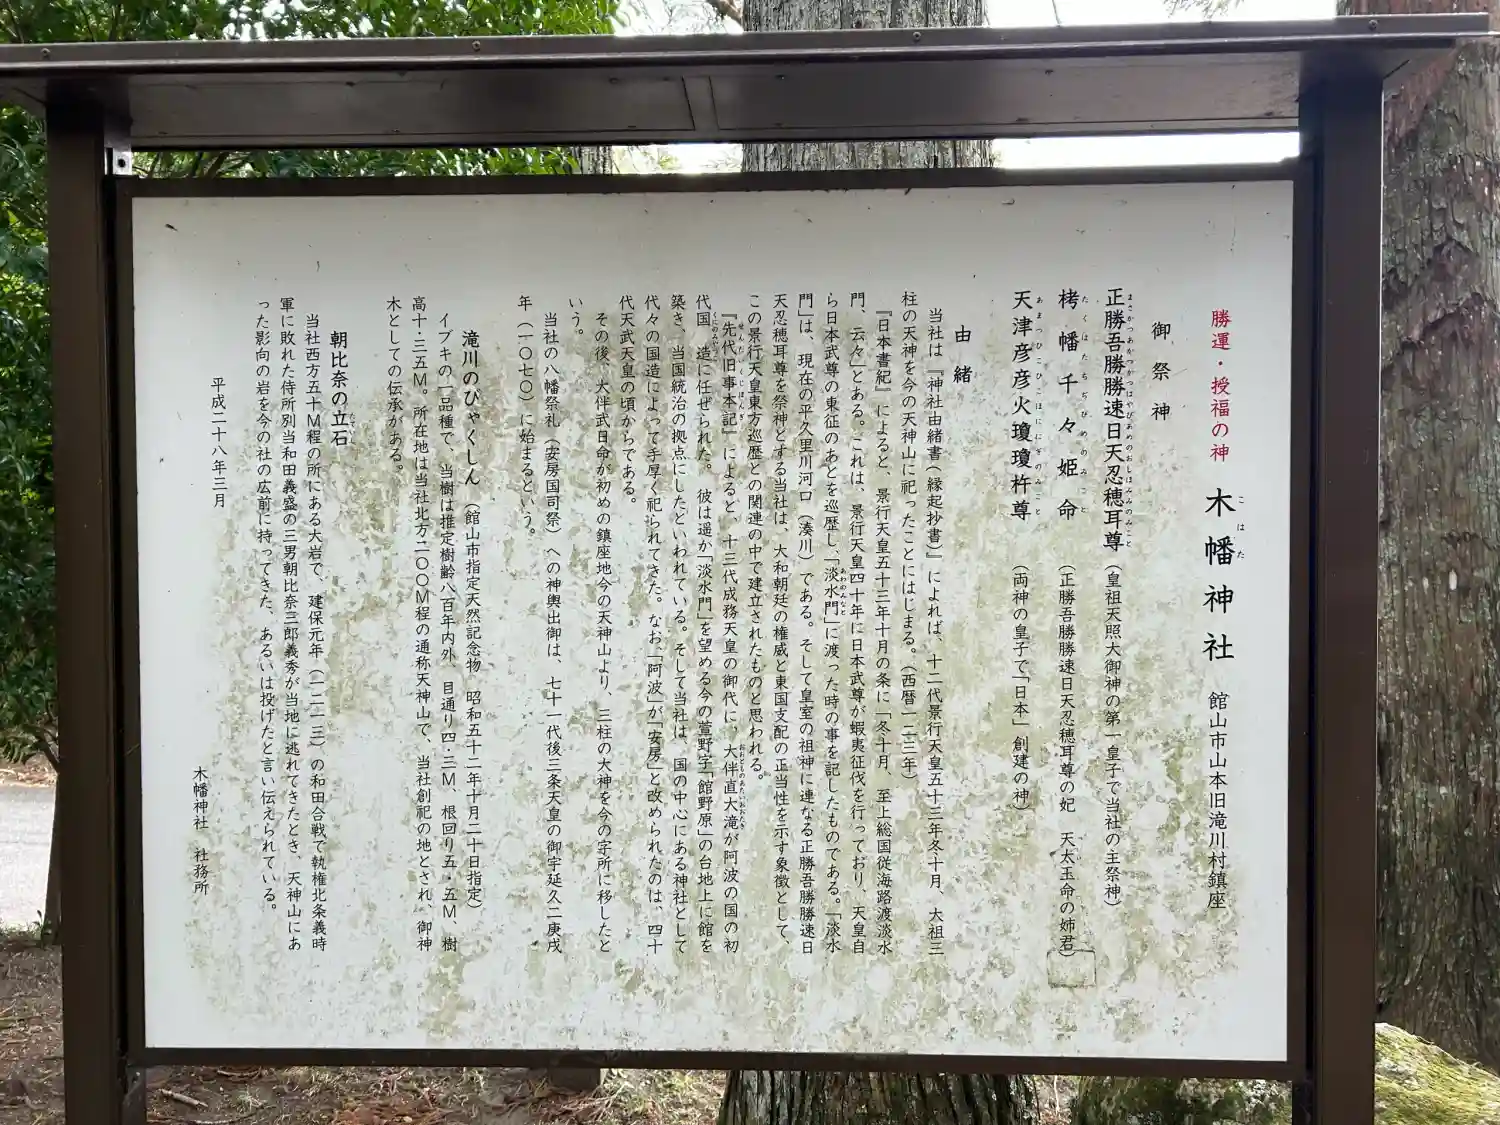 勝運・授福の神 木幡神社 館山市山本旧滝川村鎮座
こはた
御祭神
正勝吾勝勝速日天忍穂耳尊（皇祖天照大御神の第一皇子で当社の主祭神）
まさかつあかつかつはやびあめのおしほみみのみこと
栲幡千々姫命（正勝吾勝勝速日天忍穂耳尊の妃 天太玉命の姉君）
たくはたちぢひめのみこと
天津彦彦火瓊瓊杵尊（両神の皇子で「日本」創建の神）
あまつひこひこほににぎのみこと
由緒
当社は『神社由緒書（縁起抄書）』によれば、十二代景行天皇五十三年冬十月、大祖三
柱の天神を今の天神山に祀ったことにはじまる。（西暦一二三年）
『日本書紀』によると、景行天皇五十三年十月の条に「冬十月、至上総国従海路渡淡水
門、云々」とある。これは、景行天皇四十年に日本武尊が蝦夷征伐を行っており、天皇自
ら日本武尊の東征のあとを巡歴し、「淡水門」に渡った時の事を記したものである。「淡水
あわのみなと
門」は、現在の平久里川河口（湊川）である。そして皇室の祖神に連なる正勝吾勝勝速日
天忍穂耳尊を祭神とする当社は、大和朝廷の権威と東国支配の正当性を示す象徴として、
この景行天皇東方巡歴との関連の中で建立されたものと思われる。
『先代旧事本記』によると、十三代成務天皇の御代に、大伴直大滝が阿波の国の初
せんだいくじほんぎ
おおとものあたいおおたき
代国造に任ぜられた。彼は遥か「淡水門」を望める今の萱野字「館野原」の台地上に館を
くにのみやつこ
築き、当国統治の拠点にしたといわれている。そして当社は、国の中心にある神社として
代々の国造によって手厚く祀られてきた。なお、「阿波」が「安房」と改められたのは、四十
代天武天皇の頃からである。
その後、大伴武日命が初めの鎮座地今の天神山より、三柱の大神を今の字所に移したと
いう。
当社の八幡祭礼（安房国司祭）への神輿出御は、七十一代後三条天皇の御宇延久二庚戌
年（一〇七〇）に始まるという。
滝川のびゃくしん（館山市指定天然記念物 昭和五十二年十月二十日指定）
イブキの一品種で、当樹は推定樹齢八百年内外、目通り四・三Ｍ、根回り五・五Ｍ、樹
高十三五Ｍ。所在地は当社北方二〇〇Ｍ程の通称天神山で、当社創祀の地とされ、御神
木としての伝承がある。
朝比奈の立石
たていし
当社西方五十Ｍ程の所にある大岩で、建保元年（一二一三）の和田合戦で執権北条義時
軍に敗れた侍所別当和田義盛の三男朝比奈三郎義秀が当地に逃れてきたとき、天神山にあ
った影向の岩を今の社の広前に持ってきた、あるいは投げたと言い伝えられている。
平成二十八年三月
木幡神社 社務所